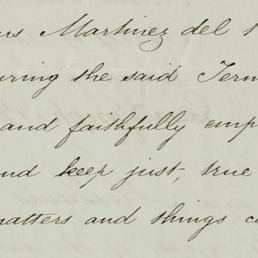 us Martinez del
uring the said Term
and faithfully emp
nd keep just, true
matters and things c